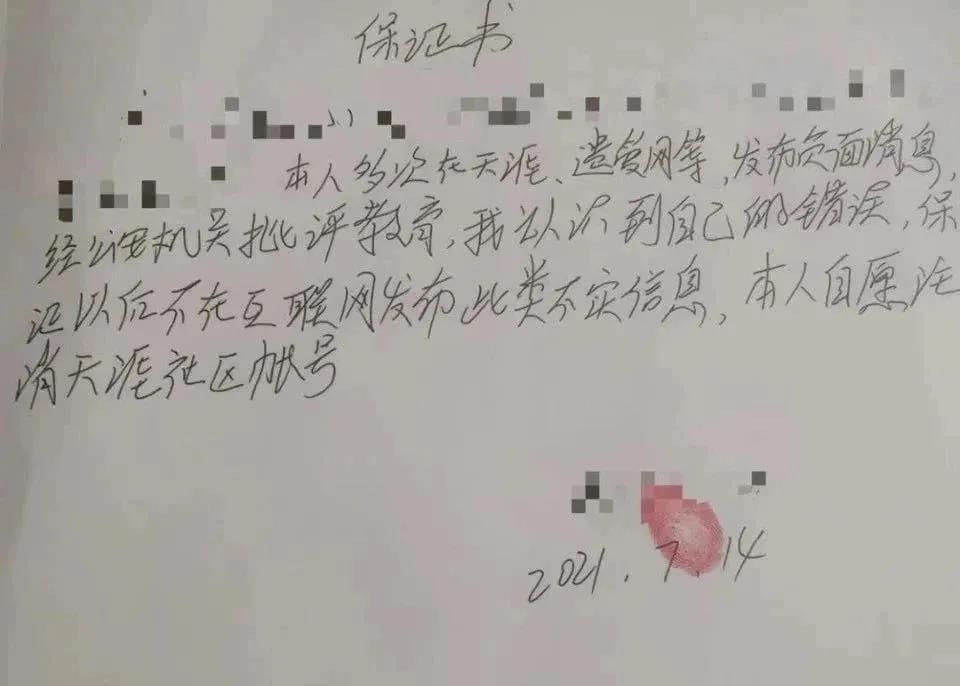 保证书
本人多次在天涯、遵爱网等，发布负面消息，
经公安机关批评教育，我认识到自己的错误，保
证以后不在互联网发布此类不实信息，本人自愿注
消天涯社区帐号
2021.7.14